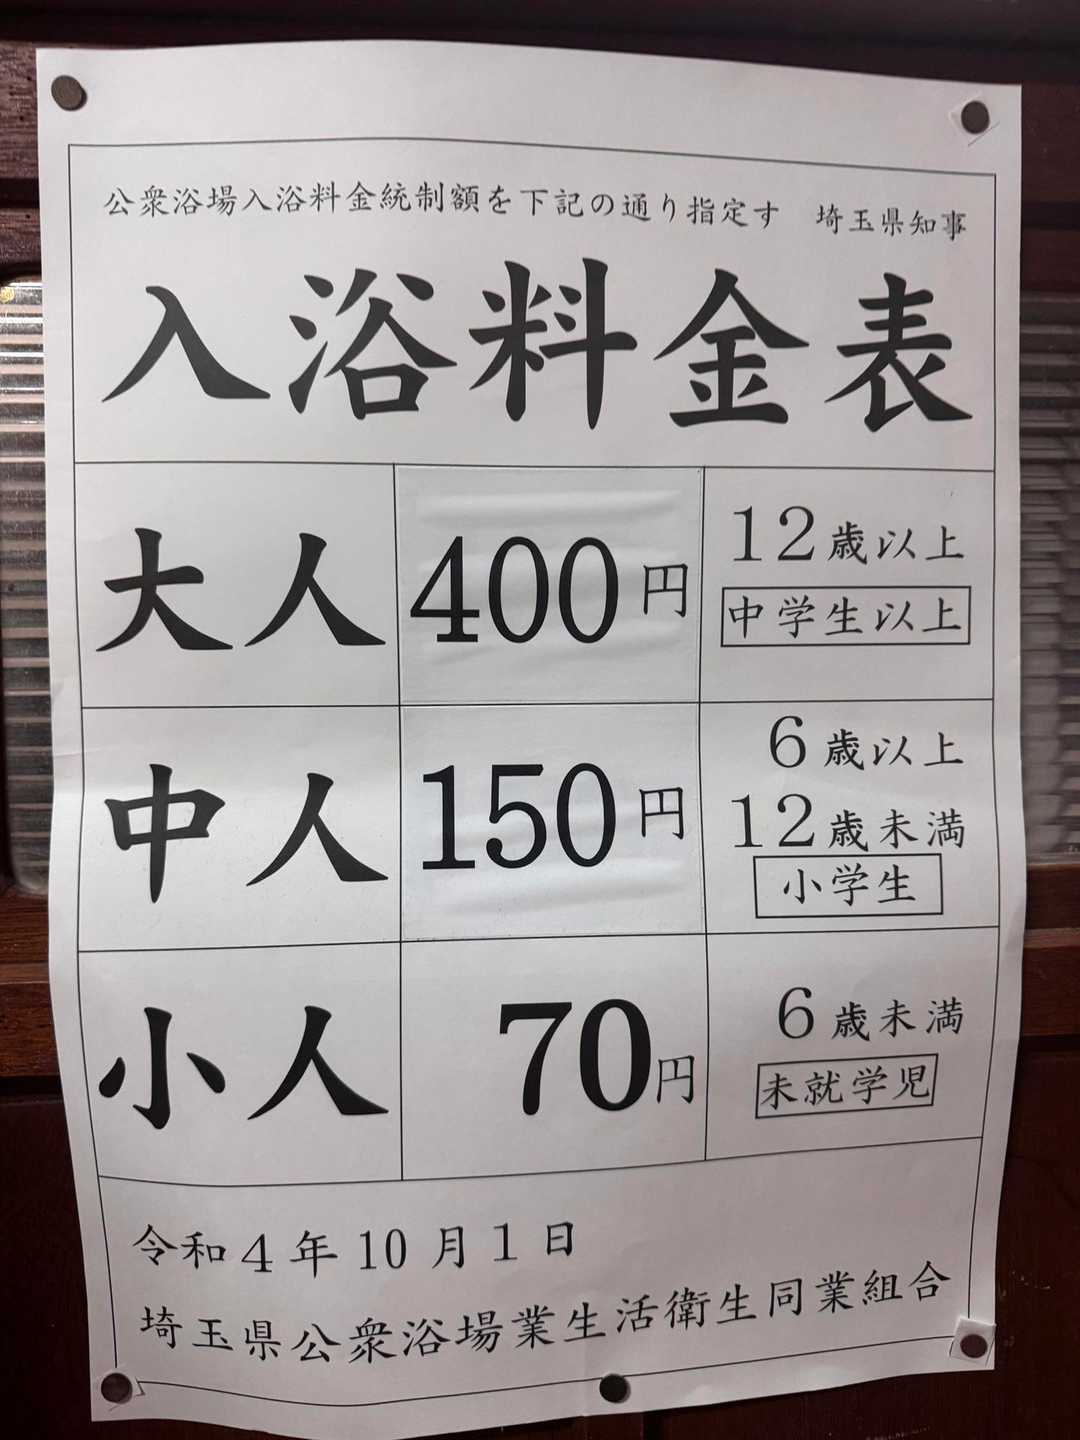 公衆浴場入浴料金統制額を下記の通り指定す　埼玉県知事
入浴料金表
大人 400円 12歳以上
中学生以上
中人 150円 6歳以上
12歳未満
小学生
小人 70円 6歳未満
未就学児
令和4年10月1日
埼玉県公衆浴場業生活衛生同業組合